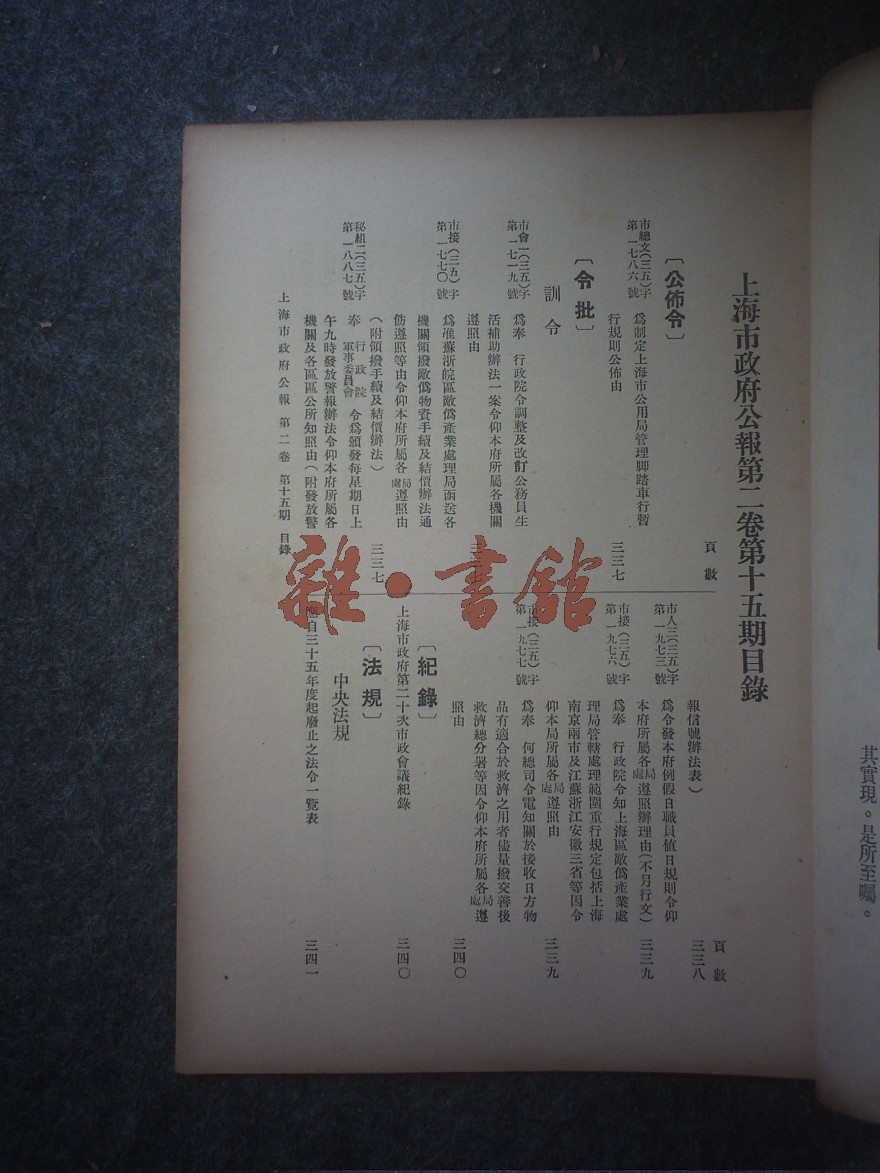 上海市政府公報第二卷第十五期目錄
頁數
〔公佈令〕
市總文(三五)字
第一七八六號
為制定上海市公用局管理脚踏車行暫
行規則公佈由
三三七
〔令批〕
訓令
市會一(三五)字
第一七一九號
為奉 行政院令調整及改訂公務員生
活補助辦法一案令仰本府所屬各機關
遵照由
市接(三五)字
第一七七〇號
為准蘇浙皖區敵僞產業處理局函送各
機關領撥敵僞物資手續及結價辦法通
飭遵照等由令仰本府所屬各處局遵照由
(附領撥手續及結價辦法)
三三七
秘組二(三五)字
第一八八七號
奉 行政院
軍事委員會 令為頒發每星期日上
午九時發放警報辦法令仰本府所屬各
機關及各區區公所知照由(附發放警
頁數
報信號辦法表)
三三八
市人三(三五)字
第一九七三號
為令發本府例假日職員值日規則令仰
本府所屬各處局遵照辦理由(不另行文)
三三九
市接(三五)字
第一九七六號
為奉 行政院令知上海區敵僞產業處
理局管轄處理範圍重行規定包括上海
南京兩市及江蘇浙江安徽三省等因令
仰本局所屬各處局遵照由
三三九
市接(三五)字
第一九七七號
為奉 何總司令電知關於接收日方物
品有適合於救濟之用者儘量撥交善後
救濟總分署等因令仰本府所屬各處局遵
照由
三四〇
〔紀錄〕
上海市政府第二十次市政會議紀錄
三四〇
〔法規〕
中央法規
自三十五年度起廢止之法令一覽表
三四一
上海市政府公報 第二卷 第十五期 目錄
其實現。是所至囑。
雜·書館